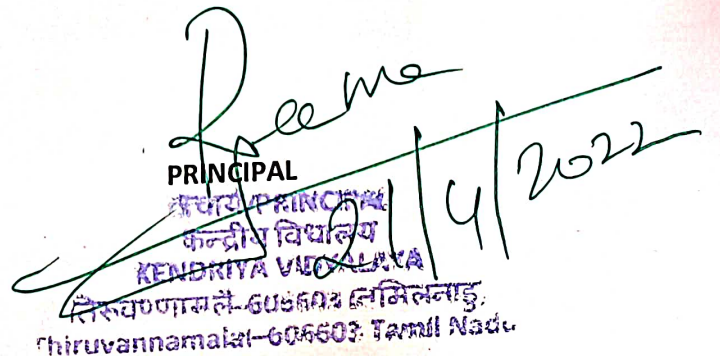 PRINCIPAL
21/4/2022
प्राचार्य/PRINCIPAL
केन्द्रीय विद्यालय
KENDRIYA VIDYALAYA
तिरुवण्णामलै-606603 तमिलनाडु
Thiruvannamalai-606603 Tamil Nadu